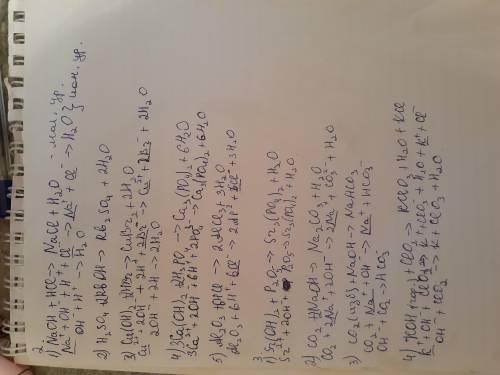 2.
1) NaOH + HCl → NaCl + H₂O - мол. ур.
Na⁺ + OH⁻ + H⁺ + Cl⁻ → Na⁺ + Cl⁻ → H₂O } ион. ур.
OH⁻ + H⁺ → H₂O
2) H₂SO₄ + 2RbOH → Rb₂SO₄ + 2H₂O
3) Cu(OH)₂ + 2HBr → CuBr₂ + 2H₂O
Cu²⁺ + 2OH⁻ + 2H⁺ + 2Br⁻ → Cu²⁺ + 2Br⁻ + 2H₂O
2OH⁻ + 2H → 2H₂O
4) 3Ca(OH)₂ + 2H₃PO₄ → Ca₃(PO₄)₂ + 6H₂O
3Ca²⁺ + 6OH⁻ + 6H⁺ + 2PO₄³⁻ → Ca₃(PO₄)₂ + 6H₂O
5) Al₂O₃ + 6HCl → 2AlCl₃ + 3H₂O
Al₂O₃ + 6H⁺ + 6Cl⁻ → 2Al³⁺ + 6Cl⁻ + 3H₂O
3.
1) Sr(OH)₂ + P₂O₅ → Sr₃(PO₄)₂ + H₂O
Sr²⁺ + 2OH⁻ + P₂O₅ → Sr₃(PO₄)₂ + H₂O
2) CO₂ + 2NaOH → Na₂CO₃ + H₂O
CO₂ + 2Na⁺ + 2OH⁻ → 2Na⁺ + CO₃²⁻ + H₂O
3) CO₂(изб) + NaOH → NaHCO₃
CO₂ + Na⁺ + OH⁻ → Na⁺ + HCO₃⁻
OH⁻ + CO₂ → HCO₃⁻